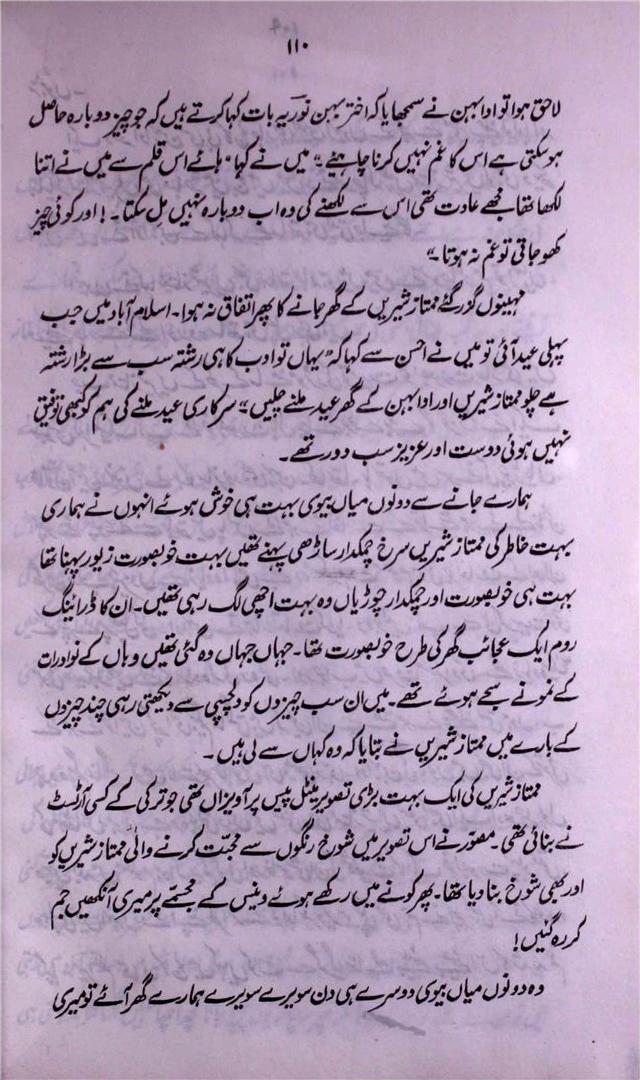 ۱۱۰
لاحق ہوا تو ادا بہن نے سمجھایا کہ اختر بہن نور یہ بات کہا کرتے ہیں کہ جو چیز دوبارہ حاصل
ہو سکتی ہے اس کا غم نہیں کرنا چاہئیے۔" میں نے کہا "ہائے اس قلم سے میں نے اتنا
لکھا تھا مجھے عادت تھی اس سے لکھنے کی وہ اب دوبارہ نہیں مل سکتا۔! اور کوئی چیز
کھو جاتی تو غم نہ ہوتا۔"
مہینوں گزر گئے ممتاز شیریں کے گھر جانے کا پھر اتفاق نہ ہوا۔ اسلام آباد میں جب
پہلی عید آئی تو میں نے احسن سے کہا کہ "یہاں تو ادب کا ہی رشتہ سب سے بڑا رشتہ
ہے چلو ممتاز شیریں اور ادا بہن کے گھر عید ملنے چلیں" سرکاری عید ملنے کی ہم کو کبھی توفیق
نہیں ہوئی دوست اور عزیز سب دور تھے۔
ہمارے جانے سے دونوں میاں بیوی بہت ہی خوش ہوئے انہوں نے ہماری
بہت خاطر کی ممتاز شیریں سرخ چمکدار ساڑھی پہنے تھیں بہت خوبصورت زیور پہنا تھا
بہت ہی خوبصورت اور چمکدار چوڑیاں وہ بہت اچھی لگ رہی تھیں۔ ان کا ڈرائینگ
روم ایک عجائب گھر کی طرح خوبصورت تھا۔ جہاں جہاں وہ گئی تھیں وہاں کے نوادرات
کے نمونے سجے ہوئے تھے۔ میں ان سب چیزوں کو دلچسپی سے دیکھتی رہی چند چیزوں
کے بارے میں ممتاز شیریں نے بتایا کہ وہ کہاں سے لی ہیں۔
ممتاز شیریں کی ایک بہت بڑی تصویر مینٹل پیس پر آویزاں تھی جو ترکی کے کسی آرٹسٹ
نے بنائی تھی۔ مصور نے اس تصویر میں شوخ رنگوں سے محبت کرنے والی ممتاز شیریں کو
اور بھی شوخ بنا دیا تھا۔ پھر کونے میں رکھے ہوئے وینس کے مجسمے پر میری آنکھیں جم
کر رہ گئیں!
وہ دونوں میاں بیوی دوسرے ہی دن سویرے سویرے ہمارے گھر آئے تو میری